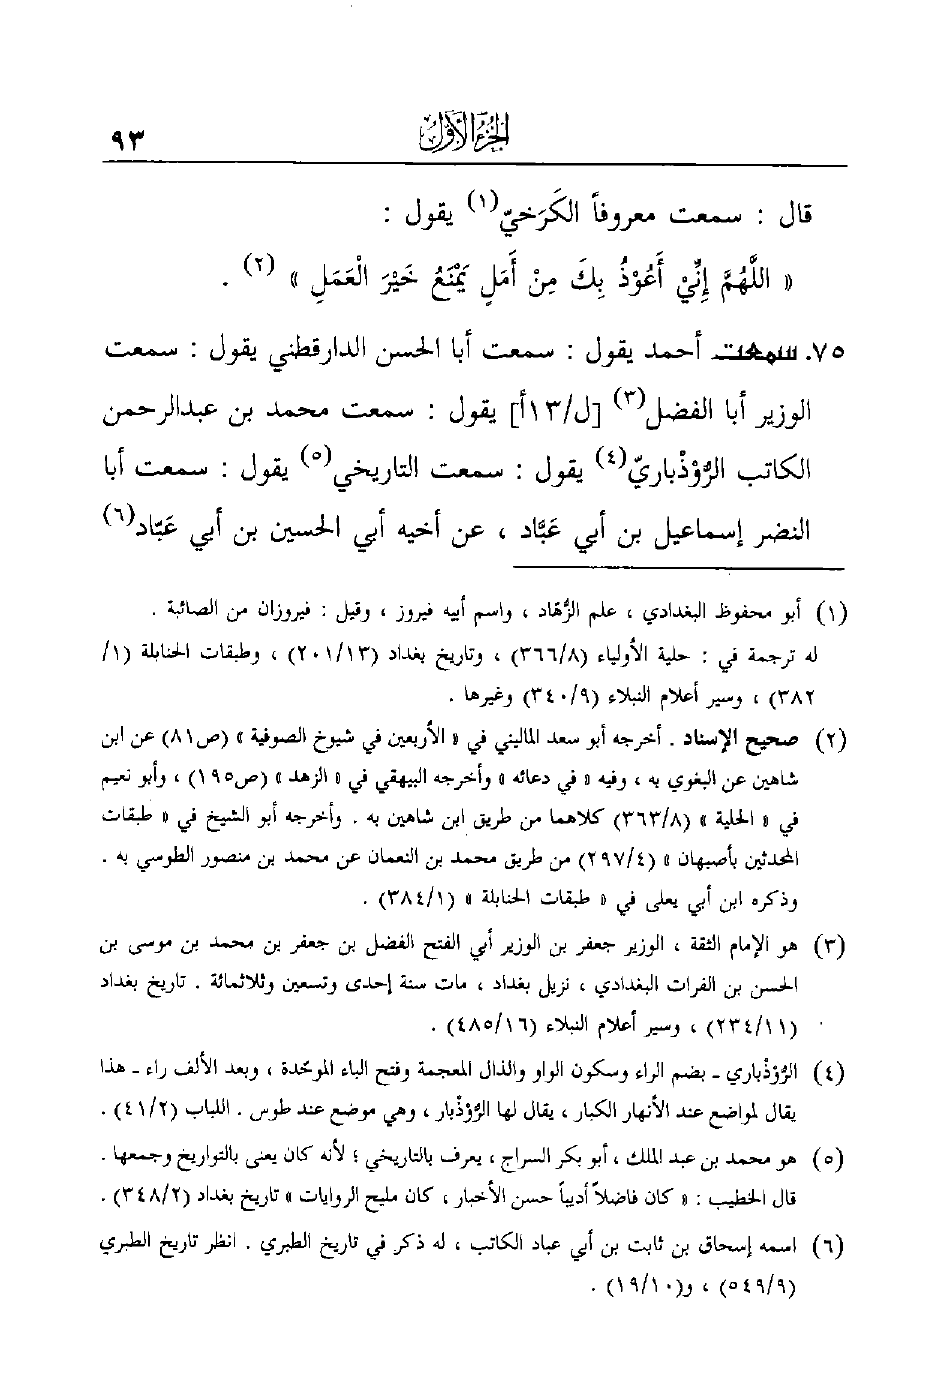 الجزء الأول ٩٣
قال : سمعت معروفاً الكَرَخيّ(١) يقول :
« اللَّهُمَّ إِنِّيْ أَعُوْذُ بِكَ مِنْ أَمَلٍ يَمْنَعُ خَيْرَ الْعَمَلِ » (٢) .
٧٥. سمعت أحمد يقول : سمعت أبا الحسن الدارقطني يقول : سمعت
الوزير أبا الفضل(٣) [ل/١٣أ] يقول : سمعت محمد بن عبدالرحمن
الكاتب الرُّوْذْباريّ(٤) يقول : سمعت التاريخي(٥) يقول : سمعت أبا
النضر إسماعيل بن أبي عَبَّاد ، عن أخيه أبي الحسين بن أبي عَبَّاد(٦)
(١) أبو محفوظ البغدادي ، علم الزُّهَّاد ، واسم أبيه فيروز ، وقيل : فيروزان من الصائبة .
له ترجمة في : حلية الأولياء (٣٦٦/٨) ، وتاريخ بغداد (٢٠١/١٣) ، وطبقات الحنابلة (١/
٣٨٢) ، وسير أعلام النبلاء (٣٤٠/٩) وغيرها .
(٢) صحيح الإسناد . أخرجه أبو سعد الماليني في « الأربعين في شيوخ الصوفية » (ص٨١) عن ابن
شاهين عن البغوي به ، وفيه « في دعائه » وأخرجه البيهقي في « الزهد » (ص١٩٥) ، وأبو نعيم
في « الحلية » (٣٦٣/٨) كلاهما من طريق ابن شاهين به . وأخرجه أبو الشيخ في « طبقات
المحدثين بأصبهان » (٢٩٧/٤) من طريق محمد بن النعمان عن محمد بن منصور الطوسي به .
وذكره ابن أبي يعلى في « طبقات الحنابلة » (٣٨٤/١) .
(٣) هو الإمام الثقة ، الوزير جعفر بن الوزير أبي الفتح الفضل بن جعفر بن محمد بن موسى بن
الحسن بن الفرات البغدادي ، نزيل بغداد ، مات سنة إحدى وتسعين وثلاثمائة . تاريخ بغداد
(٢٣٤/١١) ، وسير أعلام النبلاء (٤٨٥/١٦) .
(٤) الرُّوْذْباري ـ بضم الراء وسكون الواو والذال المعجمة وفتح الباء الموحّدة ، وبعد الألف راء ـ هذا
يقال لمواضع عند الأنهار الكبار ، يقال لها الرُّوْذْبار ، وهي موضع عند طوس . اللباب (٤١/٢) .
(٥) هو محمد بن عبد الملك ، أبو بكر السراج ، يعرف بالتاريخي ؛ لأنه كان يعنى بالتواريخ وجمعها .
قال الخطيب : « كان فاضلاً أديباً حسن الأخبار ، كان مليح الروايات » تاريخ بغداد (٣٤٨/٢) .
(٦) اسمه إسحاق بن ثابت بن أبي عباد الكاتب ، له ذكر في تاريخ الطبري . انظر تاريخ الطبري
(٥٤٩/٩) ، و(١٩/١٠) .